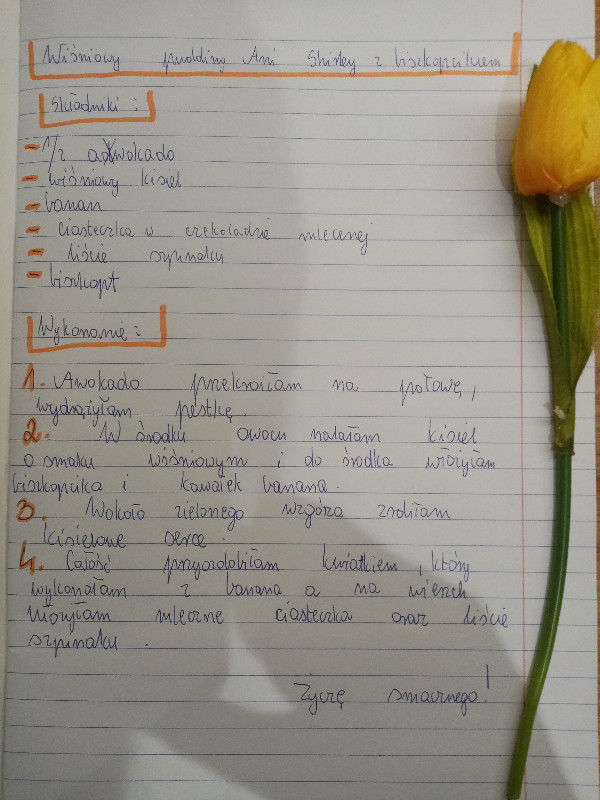 Wiśniowy pudding Ani Shirley z biszkopcikiem
Składniki:
- 1/2 adwokado
- wiśniowy kisiel
- banan
- ciasteczka w czekoladzie mlecznej
- liście szpinaku
- biszkopt
Wykonanie:
1. Awokado przekroiłam na połowę,
wydrążyłam pestkę.
2. W środku owocu nalałam kisiel
o smaku wiśniowym i do środka włożyłam
biszkopcika i kawałek banana.
3. Wokoło zielonego wzgórza zrobiłam
kisielowe serce.
4. Całość przyozdobiłam kwiatkiem, który
wykonałam z banana a na wierzch
włożyłam mleczne ciasteczka oraz liście
szpinaku.
Życzę smacznego!